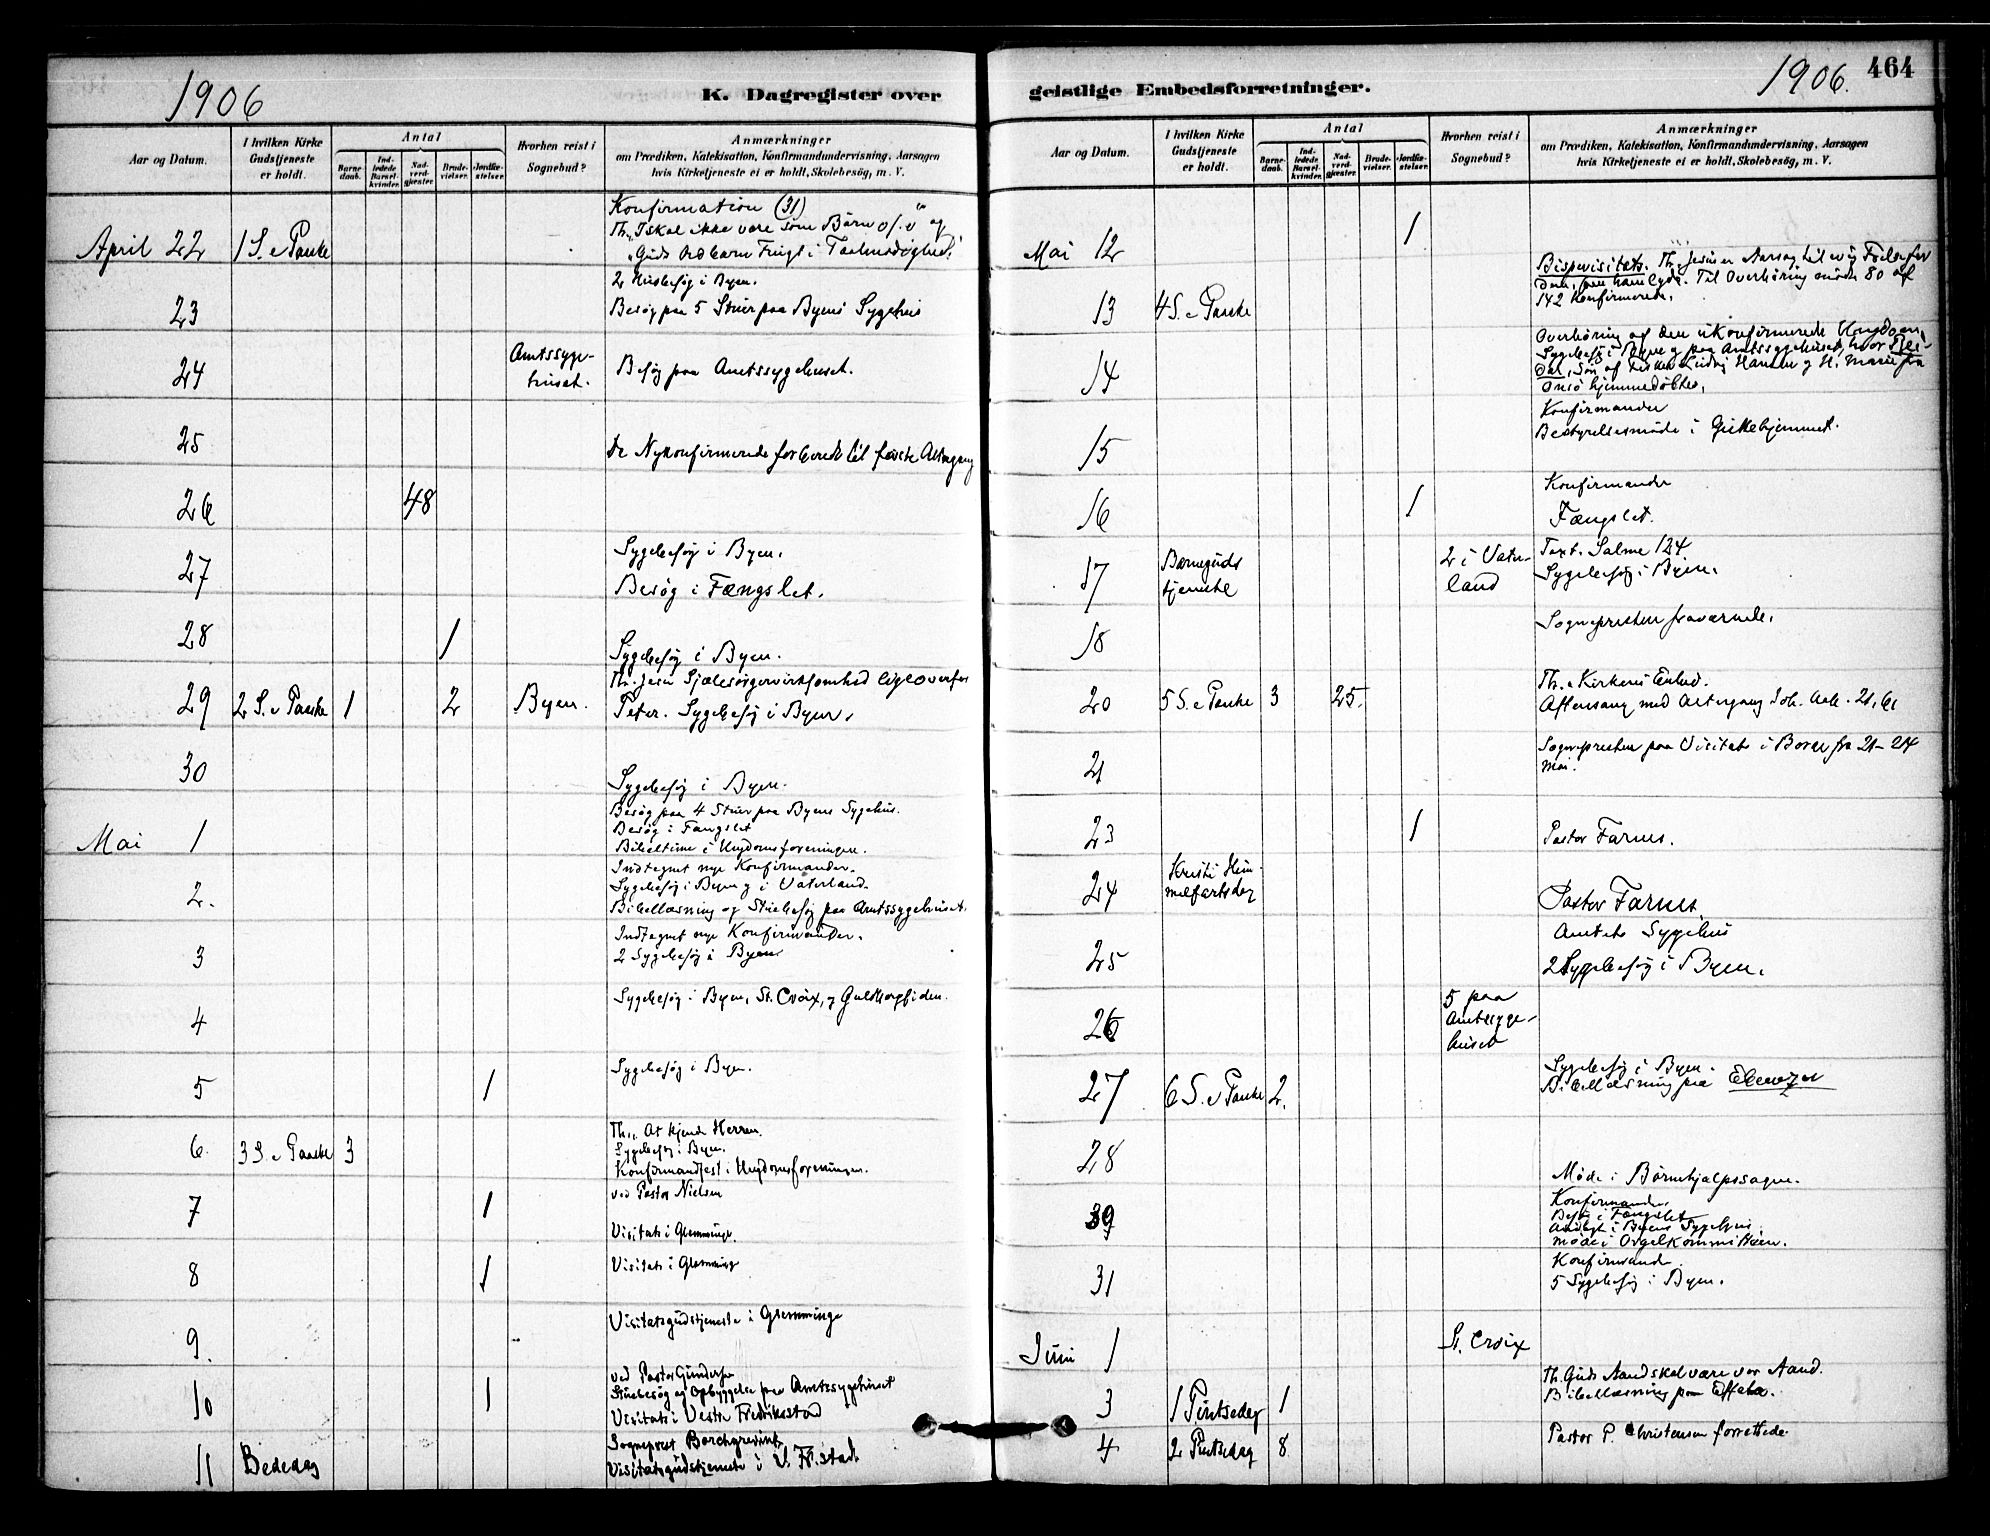 1906
K. Dagregister over
Aar og Datum.
I hvilken Kirke Gudstjeneste er holdt.
Antal
Barnedaab.
Indledede Barselkvinder.
Nadverdgjæster.
Brudevielser.
Jordfæstelser.
Hvorhen reist i Sognebud?
Anmærkninger
om Prædiken, Katekisation, Konfirmandundervisning, Aarsagen
hvis Kirketjeneste ei er holdt, Skolebesög, m. V.
Konfirmation (31)
April 22 1 S. e Paaske Th. "I skal ikke være som Børn o/. v" og
"Guds Ord Taalmodighed."
2 i Byen.
23 Besøg paa 5 Stuer paa Byens Sygehus
24 Amtssygehuset. Besøg paa Amtssygehuset.
25 De Nykonfirmerede forberedt til første Altergang
26 48
27 Sygebesøg i Byen.
Besøg i Fængslet.
28 1 Sygebesøg i Byen.
29 2 S. e Paaske 1 2 Byen. Th. Jesu Sjælesørgervirksomhed ligeoverfor
Peter. Sygebesøg i Byen.
30 Sygebesøg i Byen.
Mai 1 Besøg paa 4 Stuer paa Byens Sygehus.
Besøg i Fængslet
Bibeltime i Ungdomsforeningen.
2. Indtegnet nye Konfirmander.
Sygebesøg i Byen og i Vaterland.
Bibellæsning og Stuebesøg paa Amtssygehuset.
3 Indtegnet nye Konfirmander.
2 Sygebesøg i Byen
4 Sygebesøg i Byen, St. Croix, og Guldbergsiden.
5 1 Sygebesøg i Byen.
6 3 S. e Paaske 3 Th. At kjende Herren.
Sygebesøg i Byen.
Konfirmandfest i Ungdomsforeningen.
7 1 ved Pastor Nielsen
Visitats i Glemminge.
8 1 Visitats i Glemminge
9. Visitatsgudstjeneste i Glemminge
10 1 ved Pastor Gundersen
Stuebesøg og Opbyggelse paa Amtssygehuset
Visitats i Vestre Fredriksstad
11 Bededag Sogneprest Borchgrevink
Visitatsgudstjeneste i V. Fr.stad
geistlige Embedsforretninger.
1906.
464
Aar og Datum.
I hvilken Kirke Gudstjeneste er holdt.
Antal
Barnedaab.
Indledede Barselkvinder.
Nadverdgjæster.
Brudevielser.
Jordfæstelser.
Hvorhen reist i Sognebud?
Anmærkninger
om Prædiken, Katekisation, Konfirmandundervisning, Aarsagen
hvis Kirketjeneste ei er holdt, Skolebesög, m. V.
Mai 12 1
13 4 S. e Paaske Bispevisitats. Th. Jesus er Aarsag til evig Frelse for
dem, som ham lyde. Til Overhøring mødte 80 af
142 Konfirmerede.
14 Overhøring af den ukonfirmerede Ungdom.
Sygebesøg i Byen og paa Amtssygehuset, hvor
Søn af Ludvig Hansen og H. Marie fra
Onsø hjemmedøbtes.
15 Konfirmander
Bestyrelsesmøde i Gjestehjemmet.
16 1 Konfirmander
Fængslet.
17 Barnegudstjeneste 2 i Vaterland Text. Salme 124
Sygebesøg i Byen.
18 Sognepresten fraværende.
20 5 S. e Paaske 3 25. Th. Kirkens Enhed.
Aftensang med Altergang Joh. Aab. 21,6
21 Sognepresten paa Visitats i Borge fra 21-24
Mai.
23 1 Pastor Farnes.
24 Kristi Himmelfartsdag Pastor Farnes.
25 Amtets Sygehus
2 Sygebesøg i Byen.
26 5 paa Amtssygehuset
27 6 S. e Paaske 2. Sygebesøg i Byen.
Bibellæsning paa Ebenezer
28 Møde i Børnehjælpssagen.
29 Konfirmander
Besøg i Fængslet
Andagt i Byens Sygehus
Møde i Orgelkommitteen.
31 Konfirmander.
5 Sygebesøg i Byen.
Juni 1 St. Croix
3 1 Pintsedag 1 Th. Guds Aand skal være vor Aand.
Bibellæsning paa Effata.
4 2 Pintsedag 8 Pastor P. Christensen forrettede